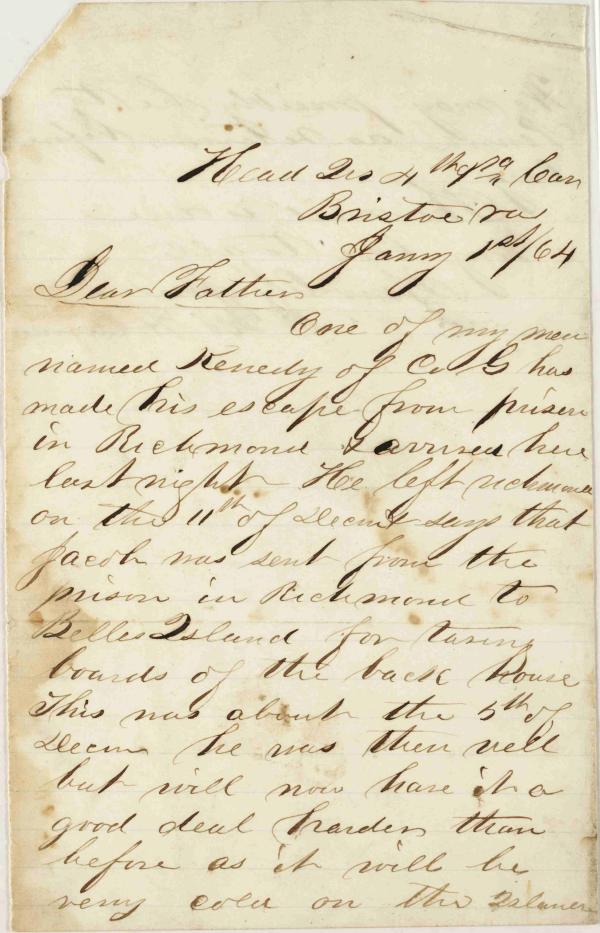 Head Qrs 4th Pa Cav
Bristoe Va
Jany 1st/64
Dear Father
One of my men
named Kenedy of Co G has
made his escape from prison
in Richmond & arrived here
last night He left richmond
on the 11th of Decm & says that
Jacob was sent from the
prison in Richmond to
Belles Island for taring
boards of the back house
This was about the 5th of
Decm he was then well
but will now have it a
good deal harder than
before as it will be
very cold on the Island